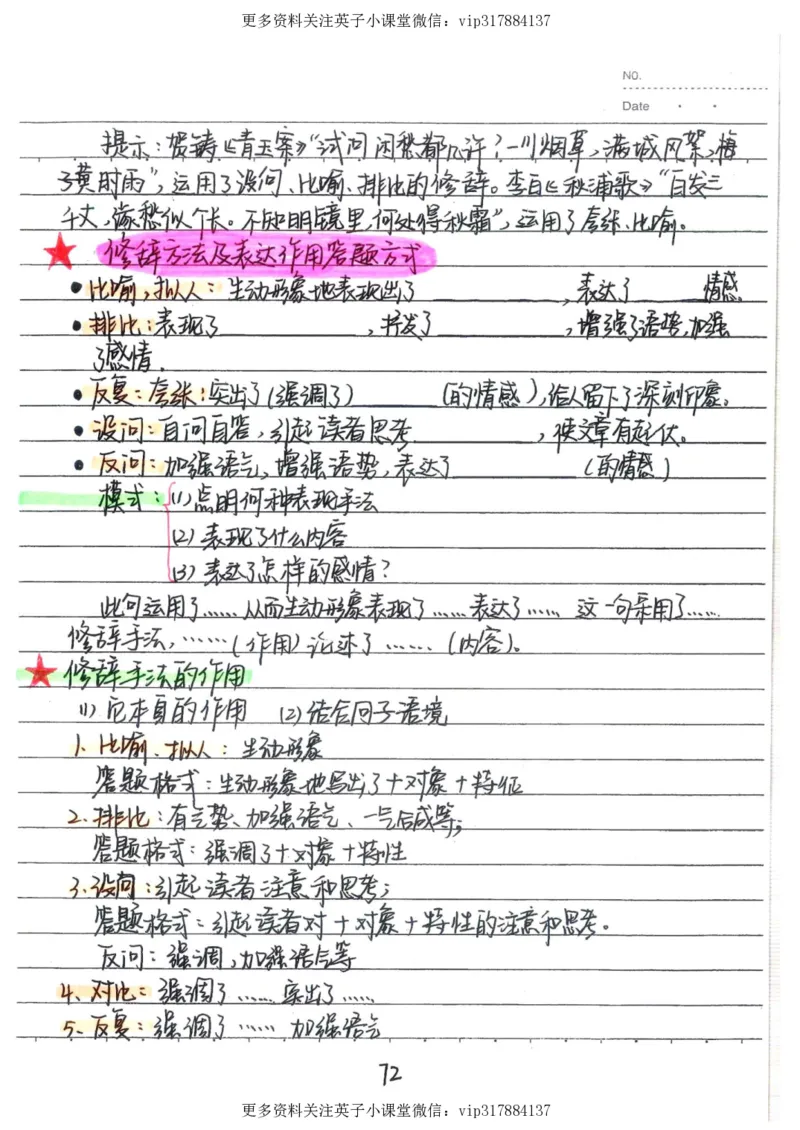 更多资料关注英子小课堂微信：vip317884137
NO.
Date
提示：贺铸《青玉案》“试问闲愁都几许？一川烟草，满城风絮，梅
子黄时雨”，运用了设问、比喻、排比的修辞。李白《秋浦歌》“白发三
千丈，缘愁似个长。不知明镜里，何处得秋霜”，运用了夸张、比喻。
修辞方法及表达作用答题方式
• 比喻，拟人：生动形象地表现出了________，表达了____情感。
• 排比：表现了________，抒发了________，增强了语势，加强
了感情．
• 反复：夸张：突出了（强调了）________（的情感），给人留下了深刻印象。
• 设问：自问自答，引起读者思考________，使文章有起伏。
• 反问：加强语气，增强语势，表达了________（的情感）
模式：(1)点明何种表现手法
(2)表现了什么内容
(3)表达了怎样的感情？
此句运用了……从而生动形象表现了……表达了…… 这一句采用了……
修辞手法，……（作用）论述了……（内容）。
修辞手法的作用
(1)它本身的作用 (2)结合句子语境
1、比喻、拟人：生动形象
答题格式：生动形象地写出了+对象+特征
2、排比：有气势、加强语气、一气呵成等；
答题格式：强调了+对象+特性
3、设问：引起读者注意和思考；
答题格式：引起读者对+对象+特性的注意和思考。
反问：强调，加强语气等
4、对比：强调了……突出了……
5、反复：强调了…… 加强语气
72
更多资料关注英子小课堂微信：vip317884137